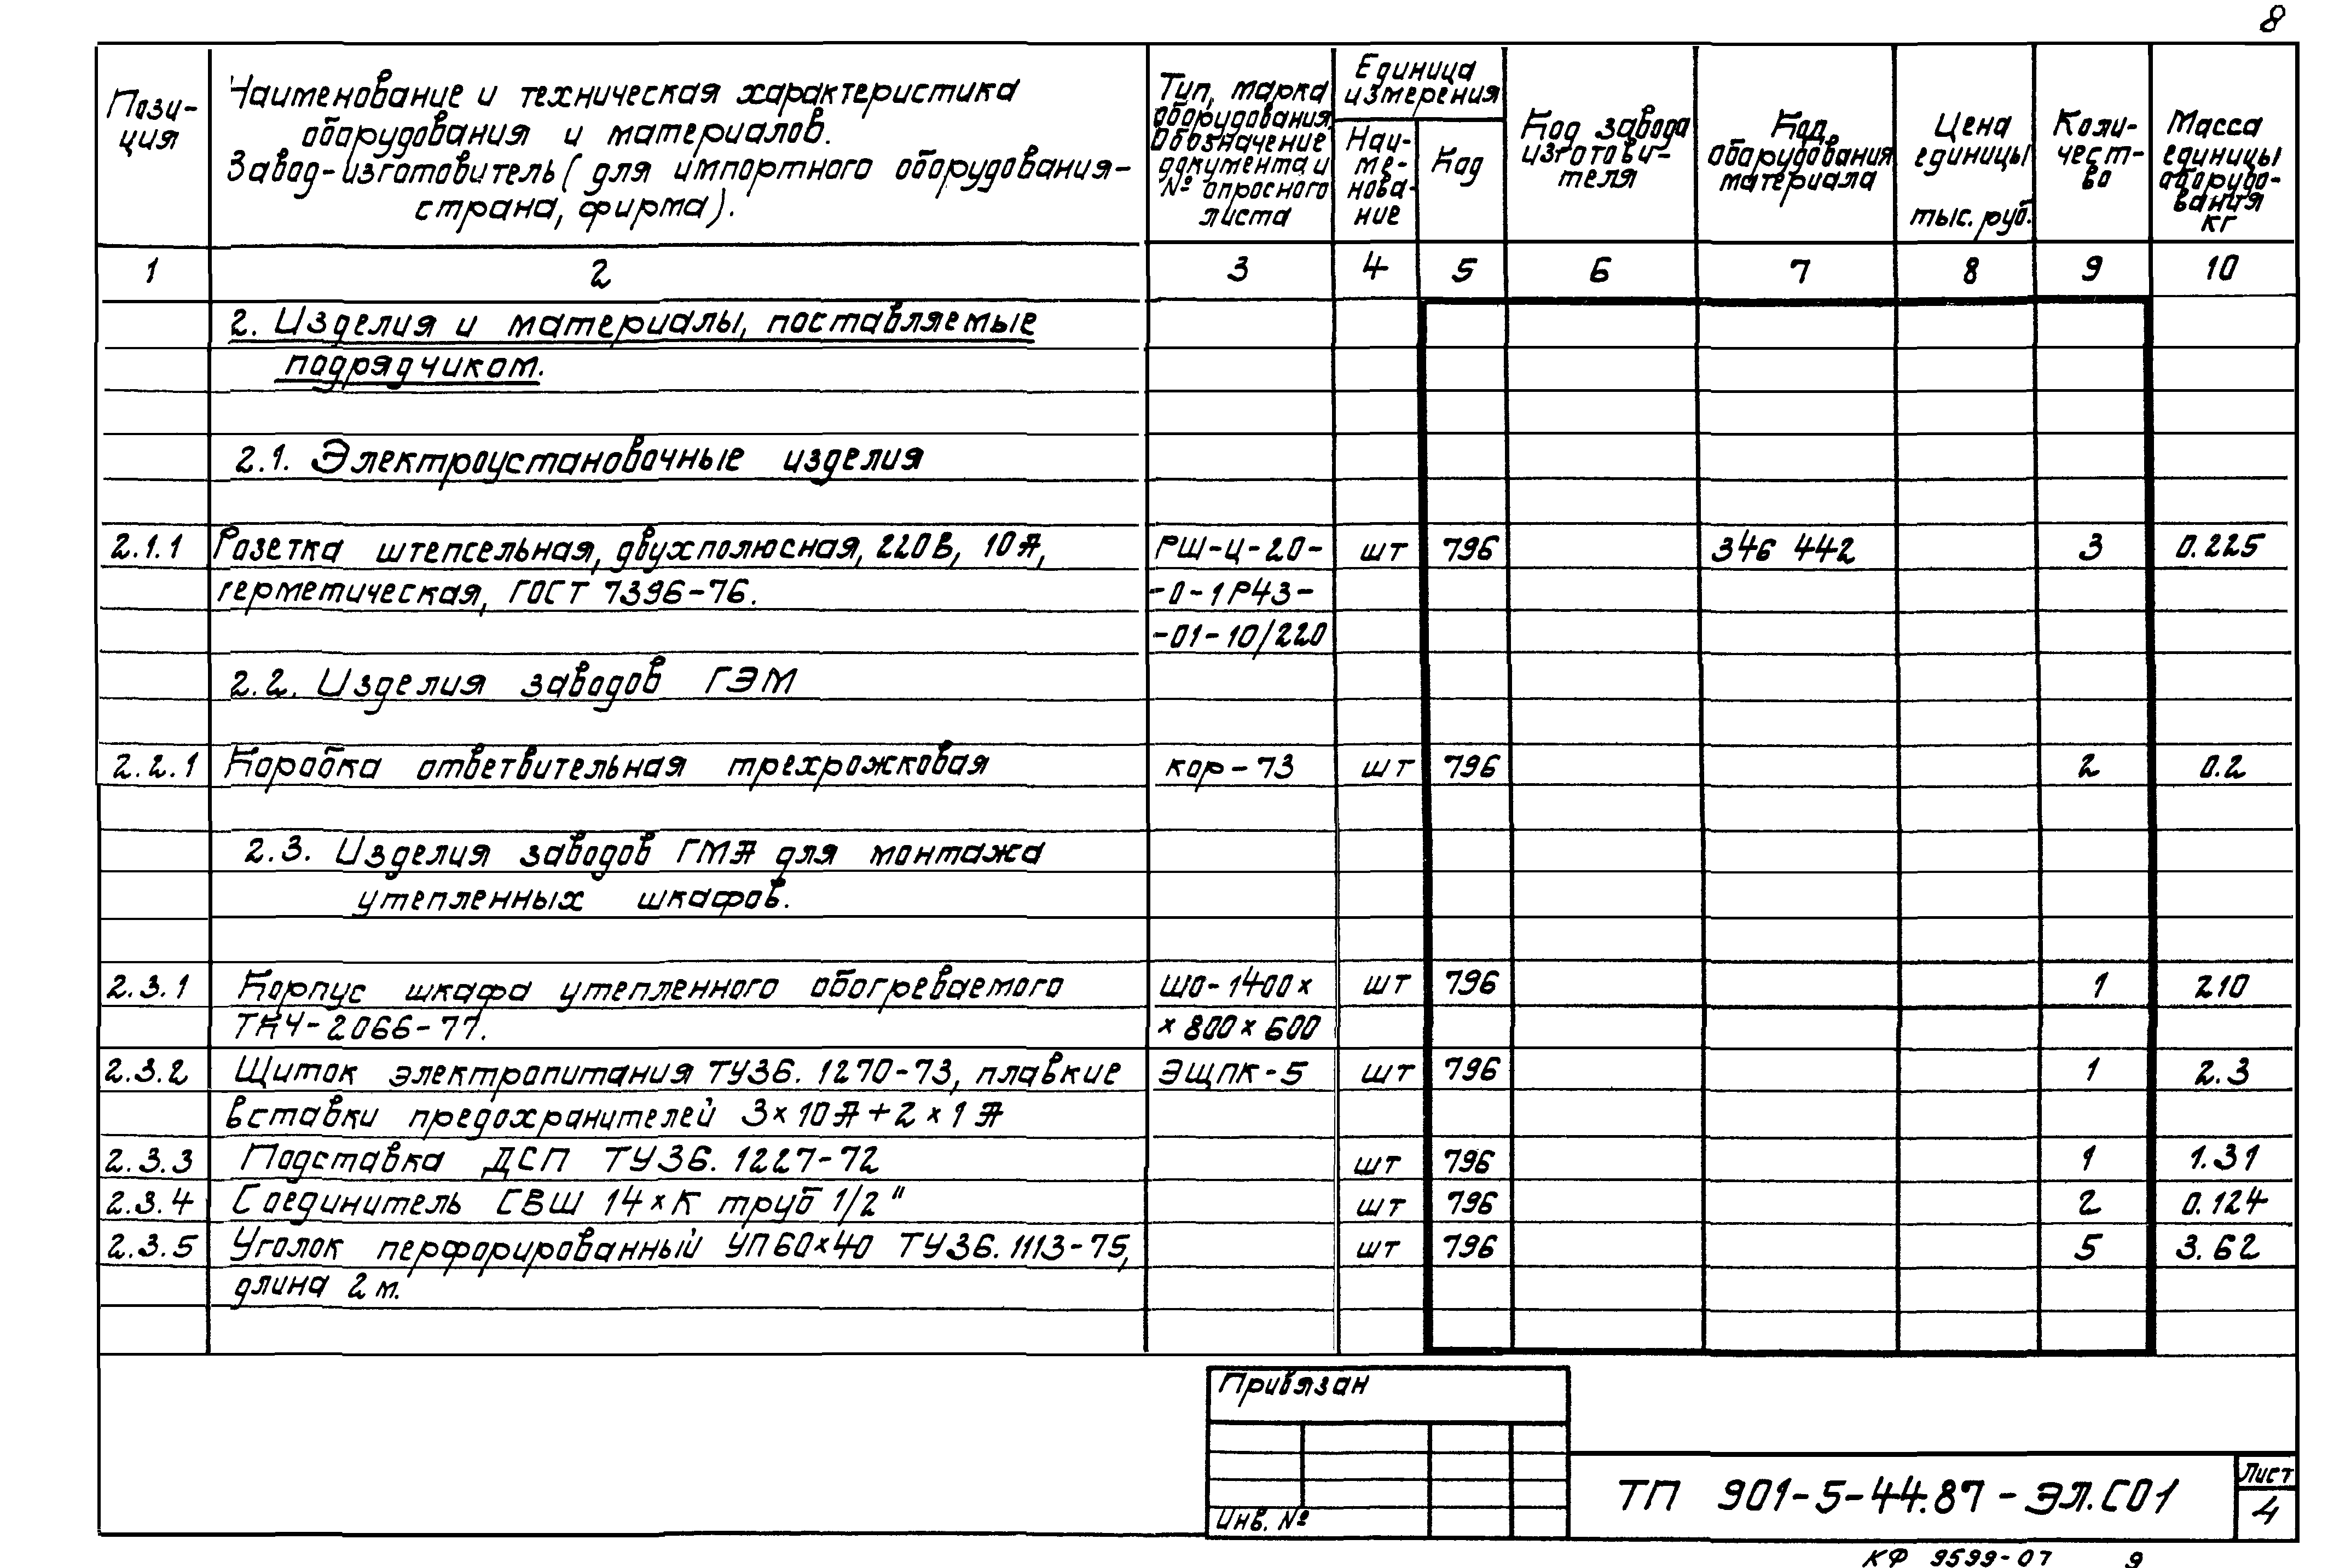 8
Пози-
ция
Наименование и техническая характеристика
оборудования и материалов.
Завод-изготовитель (для импортного оборудования-
страна, фирма).
Тип, марка
оборудования,
обозначение
документа и
№ опросного
листа
Единица
измерения
Наи-
ме-
нова-
ние
Код
Код завода
изготови-
теля
Код
оборудования
материала
Цена
единицы
тыс. руб.
Коли-
чест-
во
Масса
единицы
оборудо-
вания
кг
1 2 3 4 5 6 7 8 9 10
2. Изделия и материалы, поставляемые
подрядчиком.
2.1. Электроустановочные изделия
2.1.1 Розетка штепсельная, двухполюсная, 220В, 10А, РШ-Ц-20- шт 796 346 442 3 0.225
герметическая, ГОСТ 7396-76. -0-1Р43-
-01-10/220
2.2. Изделия заводов ГЭМ
2.2.1 Коробка ответвительная трехрожковая кор-73 шт 796 2 0.2
2.3. Изделия заводов ГМА для монтажа
утепленных шкафов.
2.3.1 Корпус шкафа утепленного обогреваемого ШО-1400х шт 796 1 210
ТКЧ-2066-77. х 800 х 600
2.3.2 Щиток электропитания ТУ36. 1270-73, плавкие ЭЩПК-5 шт 796 1 2.3
вставки предохранителей 3х10А+2х1А
2.3.3 Подставка ДСП ТУ36. 1227-72 шт 796 1 1.31
2.3.4 Соединитель СВШ 14хК труб 1/2" шт 796 2 0.124
2.3.5 Уголок перфорированный УП60х40 ТУ36. 1113-75, шт 796 5 3.62
длина 2 м.
Привязан
Инв. №
ТП 901-5-44.87-ЭЛ.СО1
Лист
4
КФ 9599-07 9